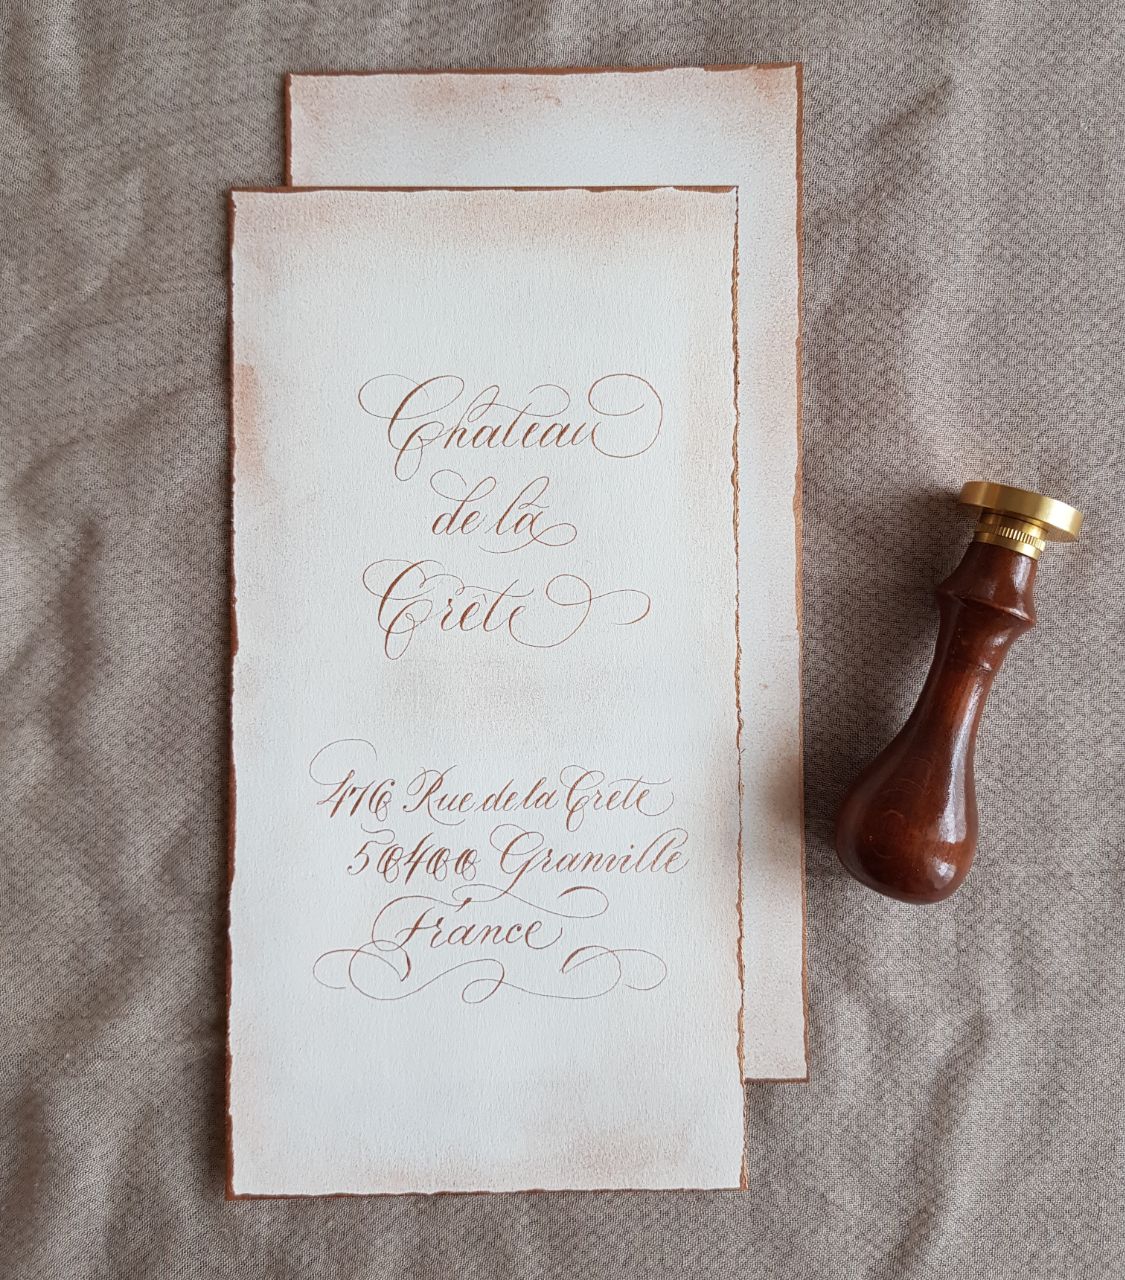 Chateau
de la
Crête
476 Rue de la Crete
50400 Granville
France